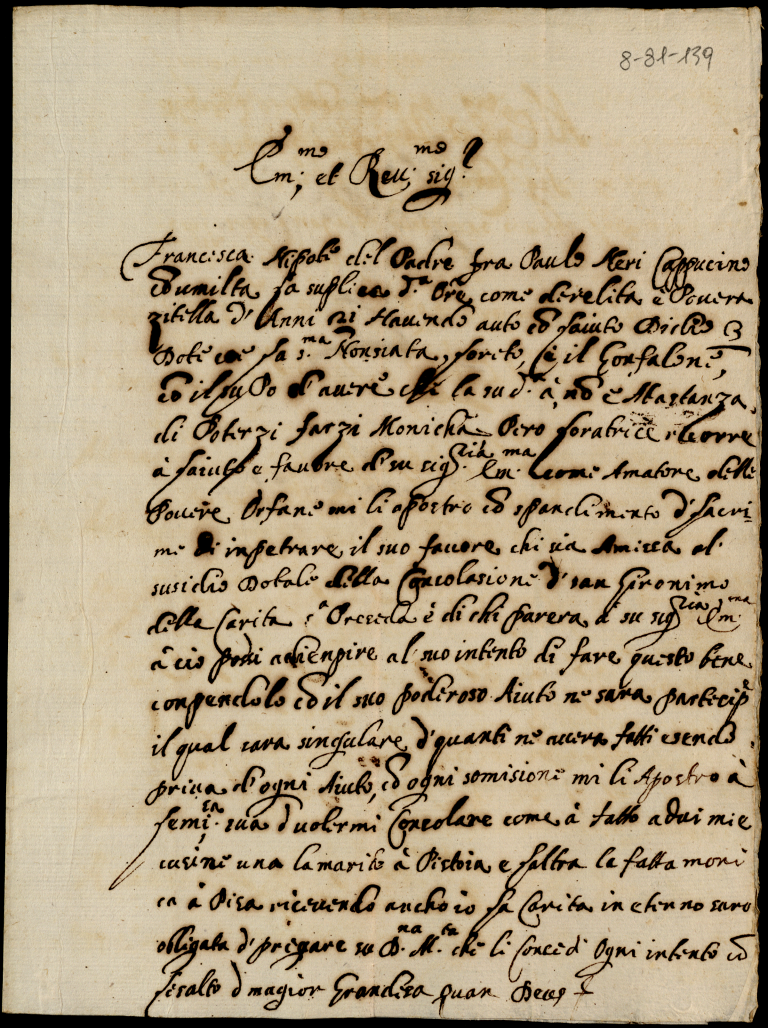 8-81-139
Em:mo et Reu:mo sig.r
Francesca Nipote del Padre fra Paulo Neri Cappucino
co umilta fa suplica d.a Ore come derelita e Povera
zitella d' Anni 21 Havendo auto co saiuto Dicho 3
Dote coe la s.ma Nonsiata, loreto, e il Gonfalone,
co il suPo d' avere che la su d.a à, no e Abastanza
di Poterzi farzi Monicha Pero loratrice ricorre
à laiuto e favore di su sig.ria Em.ma come Amatore delle
Povere Orfane mi li apostro co spanclimento d' lacri-
me di inpetrare il suo favore chi sia Amissa al
susidio Dotale della Concolasione d' san Gironimo
della Carita è di chi parera à su sig.ria Em.ma
à cio possi adienpire al suo intento di fare questo bene
conpendolo co il suo poderoso Aiuto ne sara partecipe
il qual cara singulare d' quanti ne avera fatti esendo
priva di ogni Aiuto, co ogni somisione mi li Apostro à
sua d volermi Concolare come à fatto a dui mie
cusine una la marito à Pistoia e laltra la fatta moni
ca à Pisa ricevendo ancho io la Carita in eterno saro
obligata d' pregare su D.na M.ta che li Concedi Ogni intento co
lesalto d magior Grandesa quan Deus